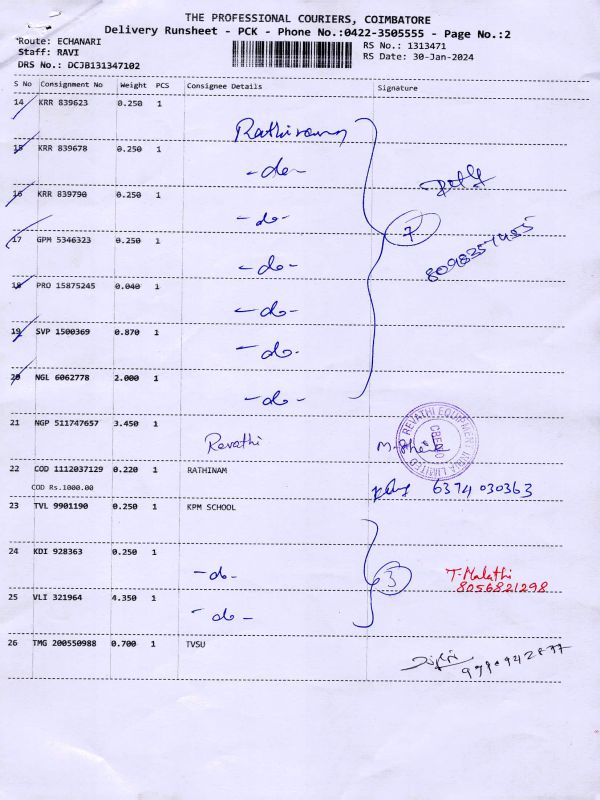 THE PROFESSIONAL COURIERS, COIMBATORE
Delivery Runsheet - PCK - Phone No.:0422-3505555 - Page No.:2
Route: ECHANARI
RS No.: 1313471
Staff: RAVI
RS Date: 30-Jan-2024
DRS No.: DCJB131347102
S No Consignment No Weight PCS Consignee Details Signature
14 KRR 839623 0.250 1
15 KRR 839678 0.250 1 -do-
16 KRR 839790 0.250 1 -do-
7
17 GPM 5346323 0.250 1 -do-
18 PRO 15875245 0.040 1 -do-
19 SVP 1500369 0.870 1 -do-
20 NGL 6062778 2.000 1 -do-
21 NGP 511747657 3.450 1 Revathi
REVATHI EQUIPMENT INDIA LIMITED
22 COD 1112037129 0.220 1 RATHINAM
COD Rs.1000.00 6374 030363
23 TVL 9901190 0.250 1 KPM SCHOOL
24 KDI 928363 0.250 1 -do- 3 T-Malathi
8056821298
25 VLI 321964 4.350 1 -do-
26 TMG 200550988 0.700 1 TVSU